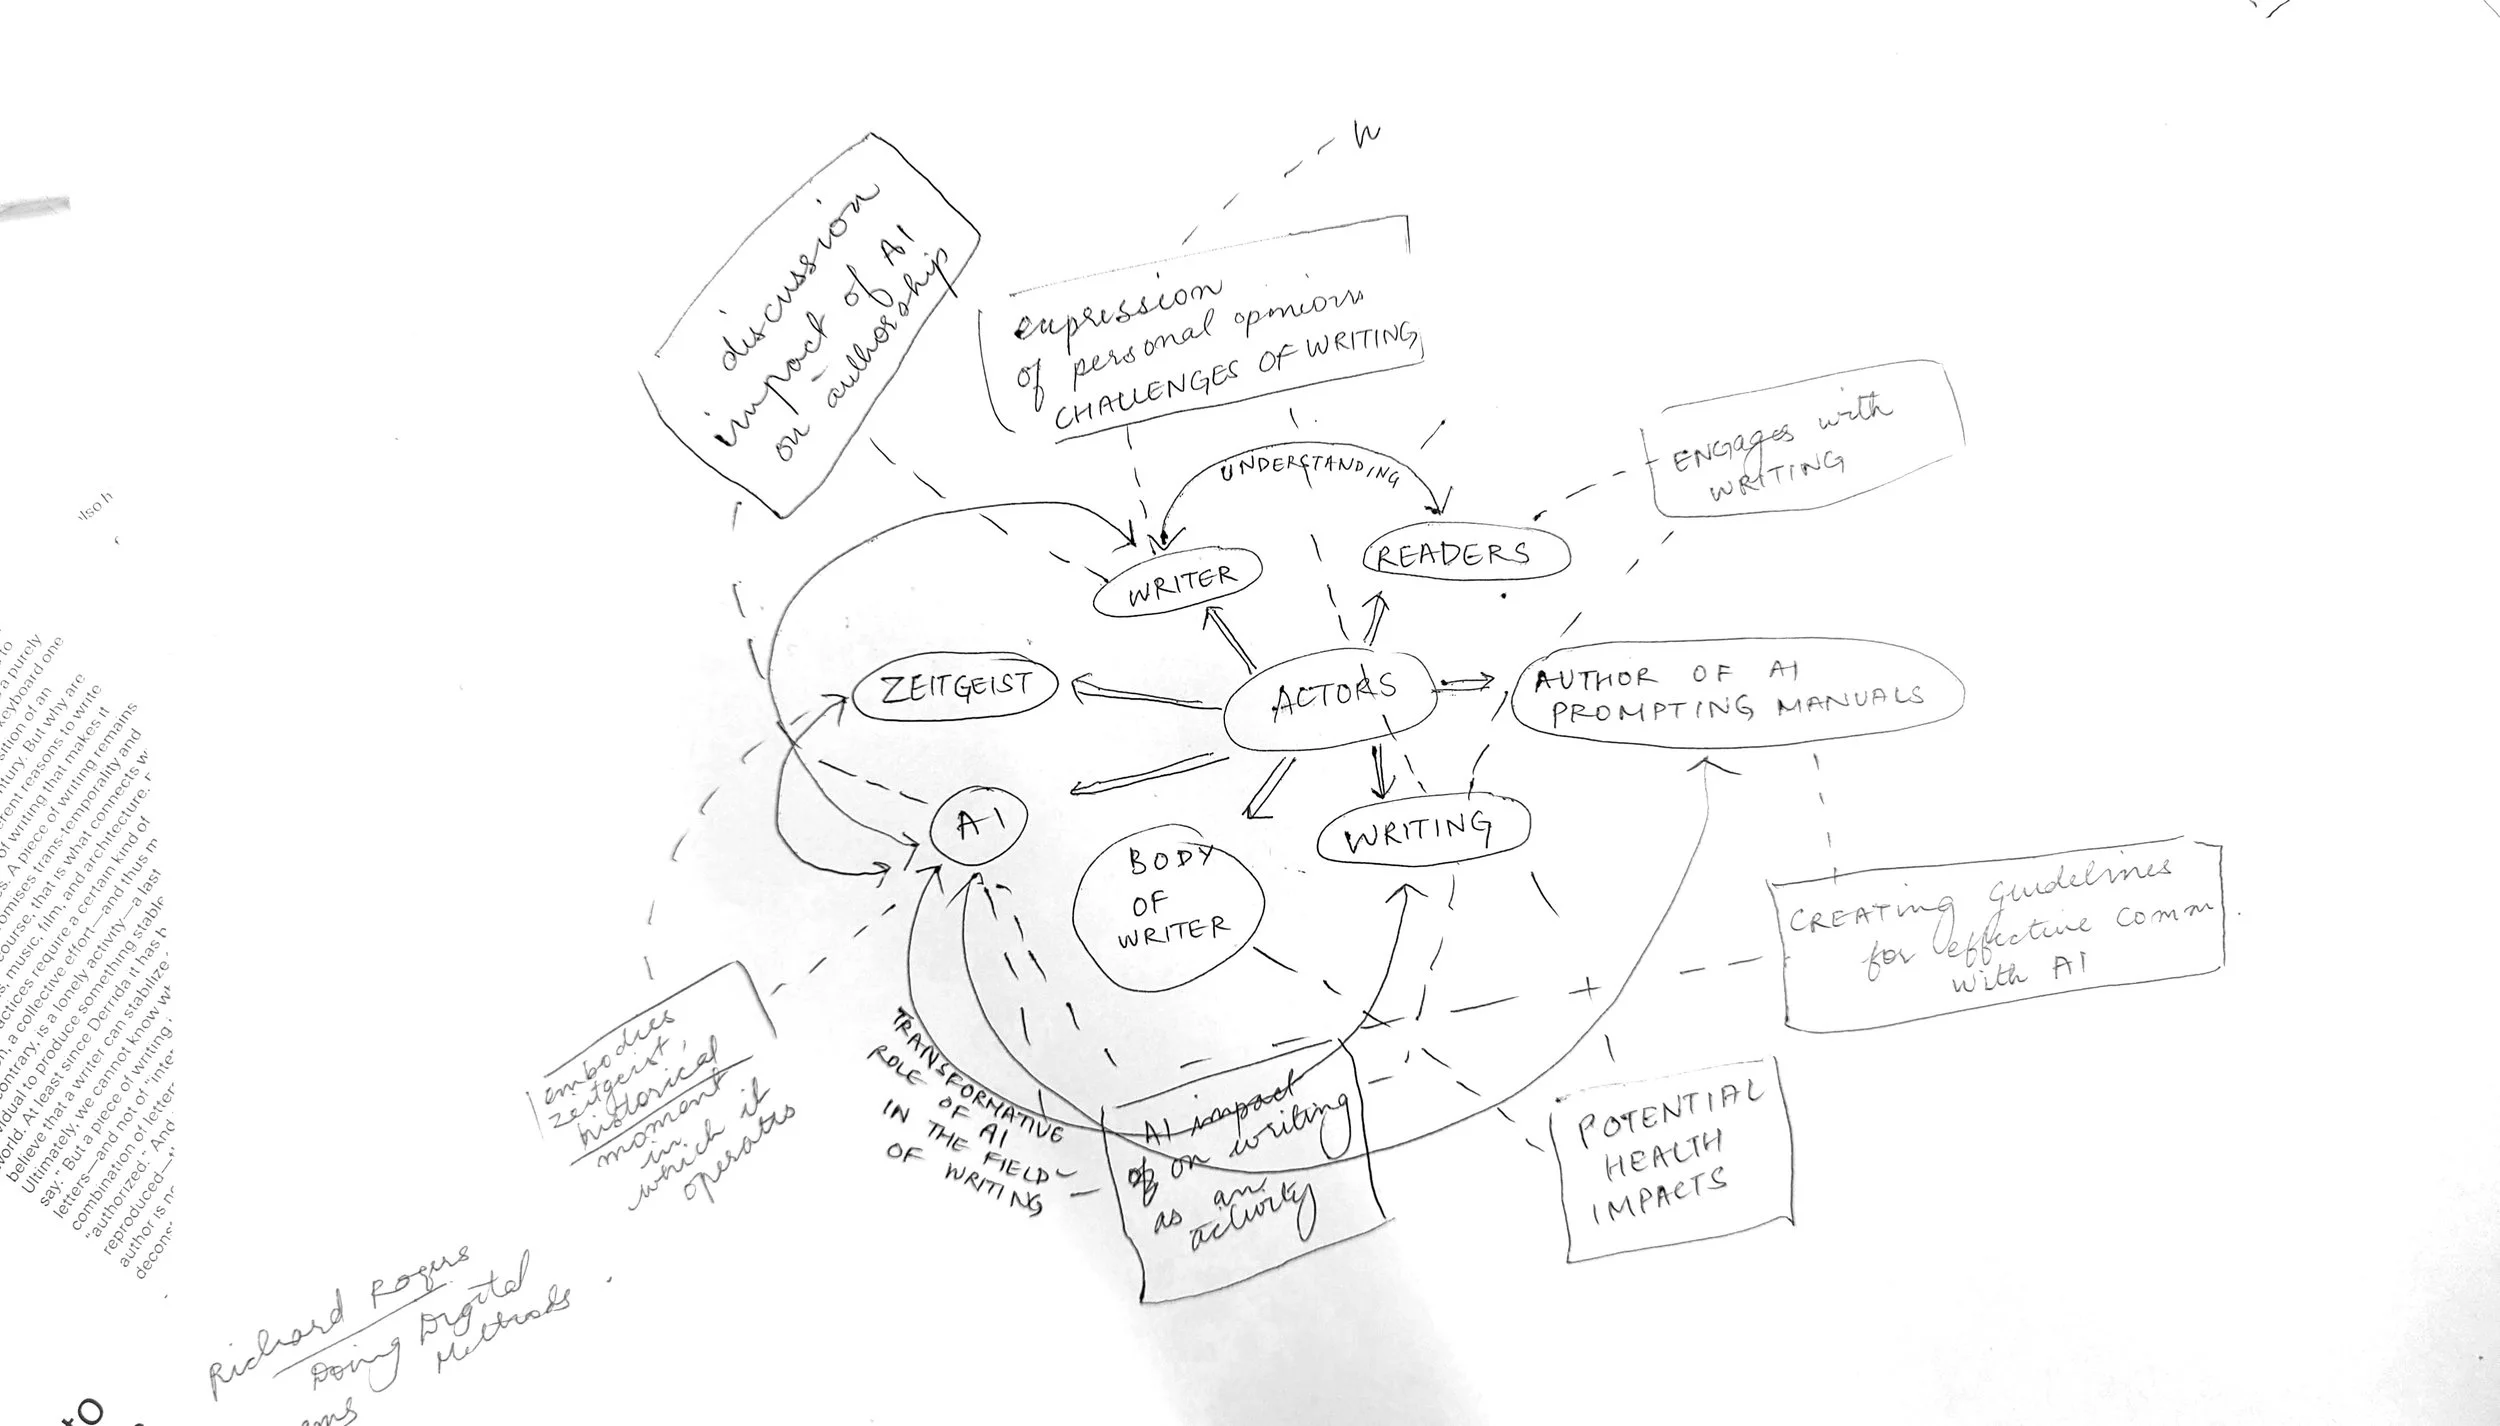 discussion
impact of AI
on authorship
expression
of personal opinions
CHALLENGES OF WRITING
UNDERSTANDING
ENGAGES with
WRITING
WRITER
READERS
ZEITGEIST
ACTORS
AUTHOR OF AI
PROMPTING MANUALS
AI
BODY
OF
WRITER
WRITING
CREATING guidelines
for effective comm
with AI
embodies
zeitgeist,
historical
moment
in
which it
operates
TRANSFORMATIVE
ROLE OF AI
IN THE FIELD
OF WRITING
AI impact
of on writing
as an
activity
POTENTIAL
HEALTH
IMPACTS
Richard Rogers
Doing Digital
Methods
to
a purely
keyboard one
sition of an
ntury. But why are
erent reasons to write
of writing that makes it
s. A piece of writing remains
omises trans-temporality and
ourse, that is what connects w
, music, film, and architecture.
actices require a certain kind of
n, a collective effort—and thus m
ontrary, is a lonely activity—a last
vidual to produce something stable
world. At least since Derrida it has
believe that a writer can stabilize
Ultimately, we cannot know
say." But a piece of writing
letters—and not of "inter
combination of letter
"authorized." And
reproduced—
author is
decons
to